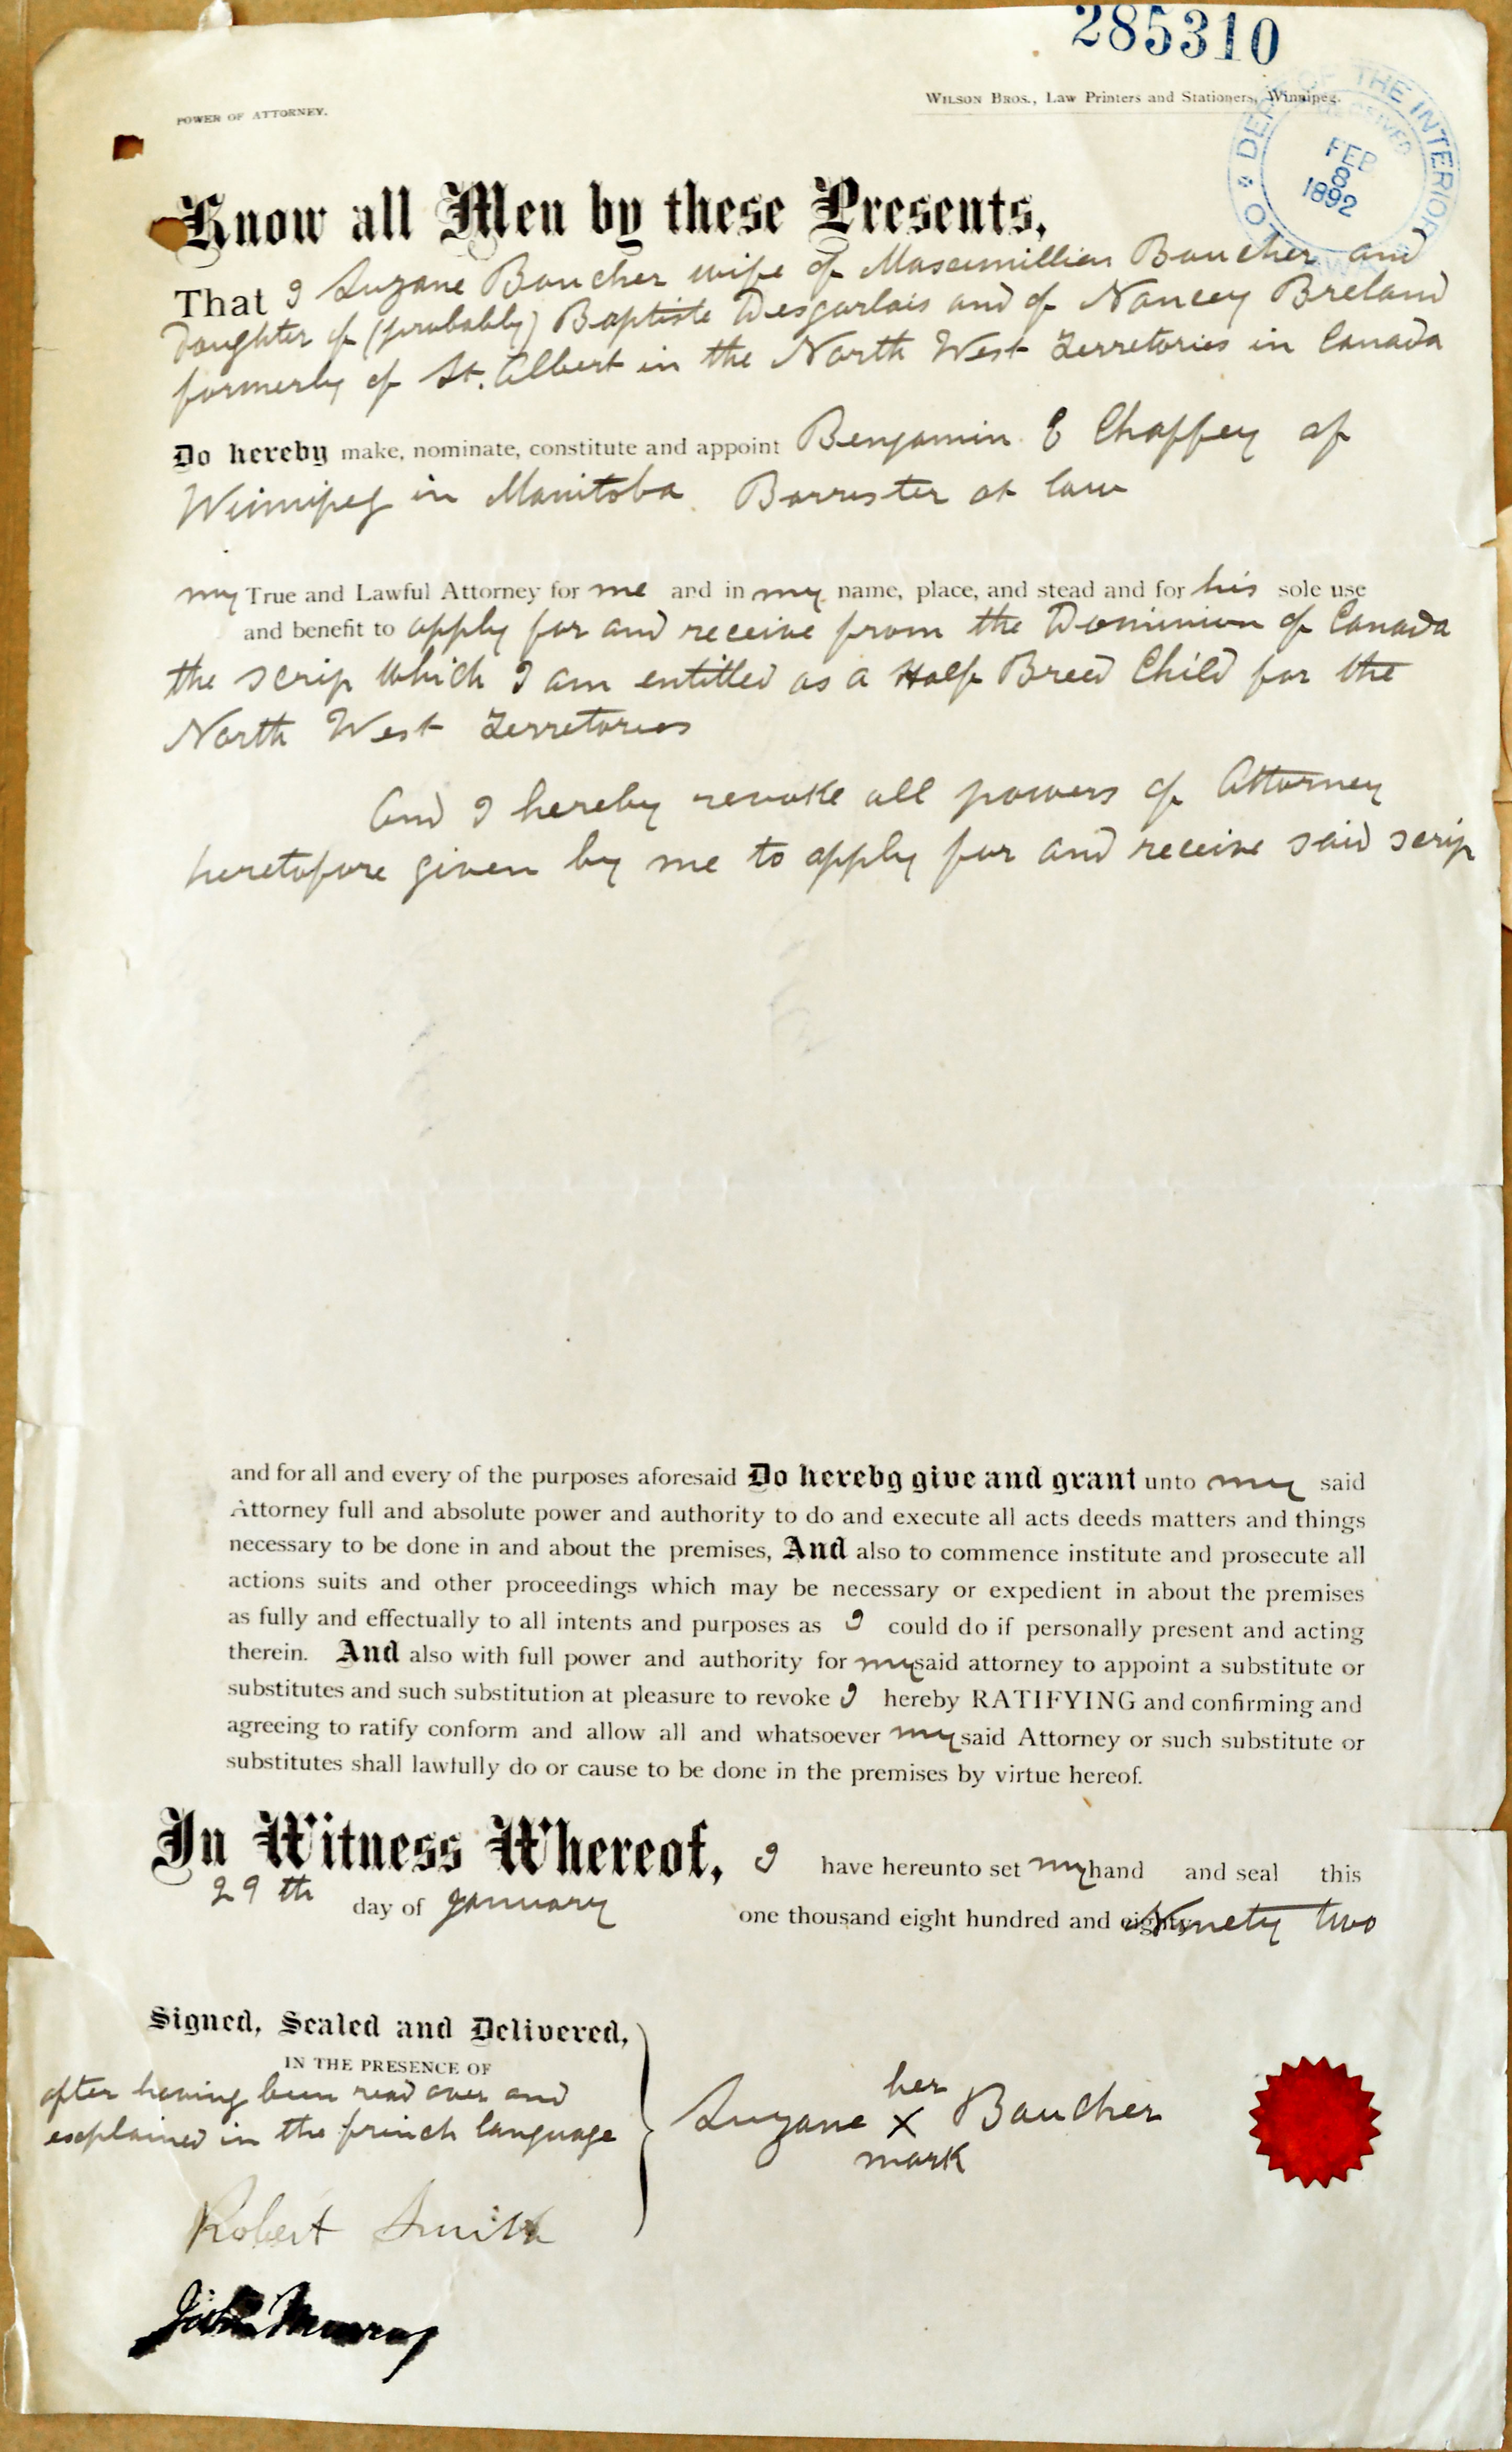 285310
POWER OF ATTORNEY.
WILSON BROS., Law Printers and Stationers, Winnipeg.
DEPT OF THE INTERIOR
RECEIVED
FEB
8
1892
OTTAWA
Know all Men by these Presents,
That I Suzane Baucher wife of Maxemillien Baucher and
Daughter of (probably) Baptiste Desgarlais and of Nancey Breland
formerly of St. Albert in the North West Terretories in Canada
Do hereby make, nominate, constitute and appoint Benjamin E Chaffey of
Winnipeg in Manitoba Barrister at law
my True and Lawful Attorney for me and in my name, place, and stead and for his sole use
and benefit to apply for and receive from the Dominion of Canada
the scrip which I am entitled as a Half Breed Child for the
North West Terretories
And I hereby revoke all powers of Attorney
heretofore given by me to apply for and receive said scrip
and for all and every of the purposes aforesaid Do herebg give and grant unto my said
Attorney full and absolute power and authority to do and execute all acts deeds matters and things
necessary to be done in and about the premises, And also to commence institute and prosecute all
actions suits and other proceedings which may be necessary or expedient in about the premises
as fully and effectually to all intents and purposes as I could do if personally present and acting
therein. And also with full power and authority for my said attorney to appoint a substitute or
substitutes and such substitution at pleasure to revoke I hereby RATIFYING and confirming and
agreeing to ratify conform and allow all and whatsoever my said Attorney or such substitute or
substitutes shall lawfully do or cause to be done in the premises by virtue hereof.
In Witness Whereof, I have hereunto set my hand and seal this
29th day of January one thousand eight hundred and eighty Ninety two
Signed, Sealed and Delivered,
IN THE PRESENCE OF
after having been read over and
explained in the french language
her
Suzane X Baucher
mark
Robert Smith
John Murray